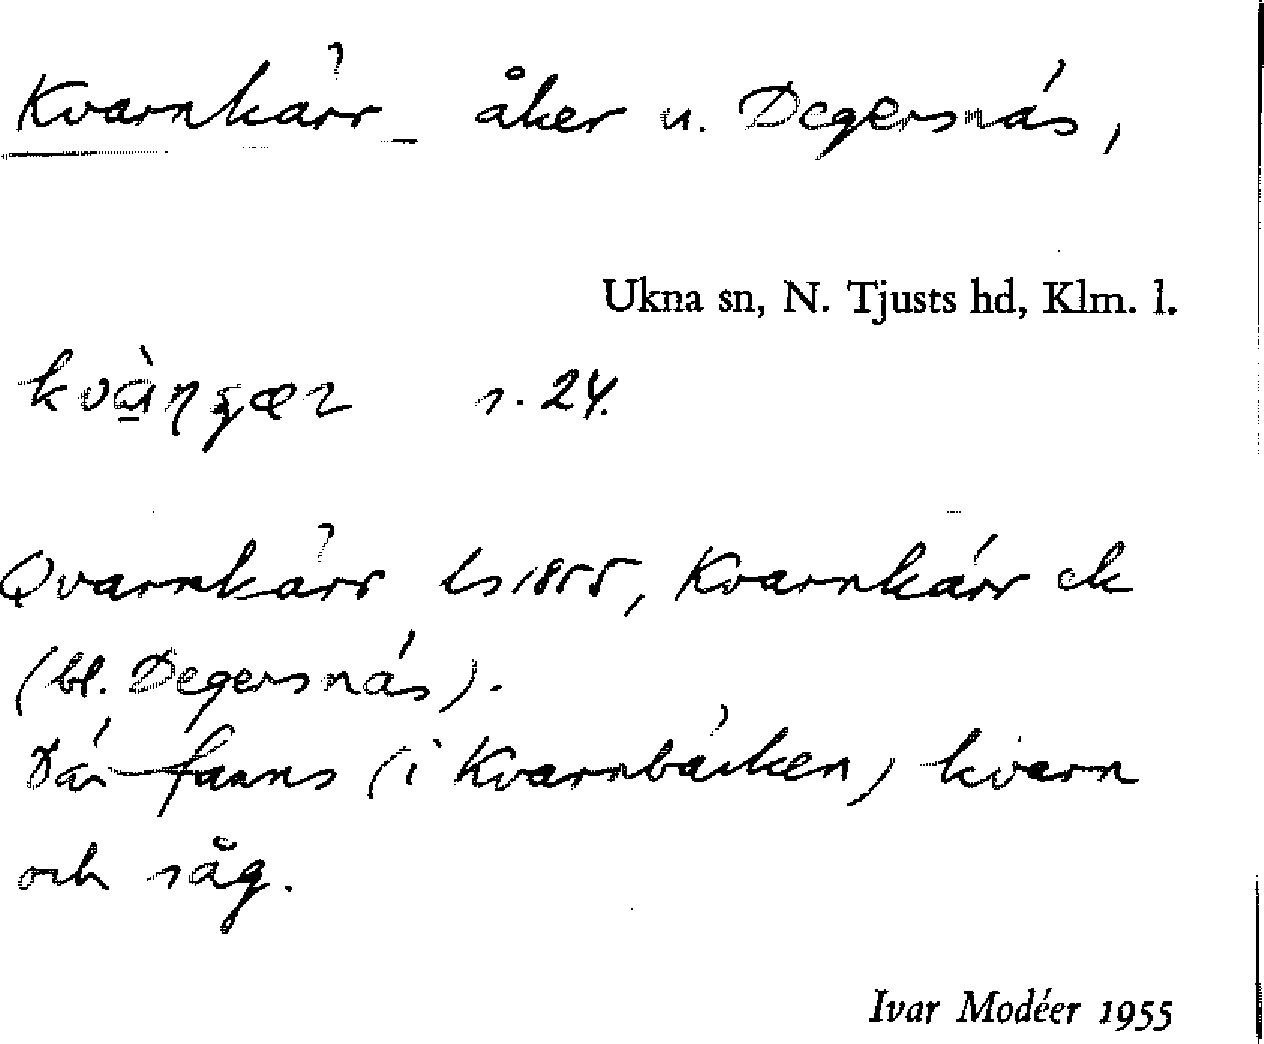 Kvarnkärr åker u. Degersnäs,
Ukna sn, N. Tjusts hd, Klm. l.
s. 24.
Qvarnkärr ls 1855, Kvarnkärr ek
(bl. Degersnäs).
Där fanns (i Kvarnbäcken) kvarn
och såg.
Ivar Modéer 1955